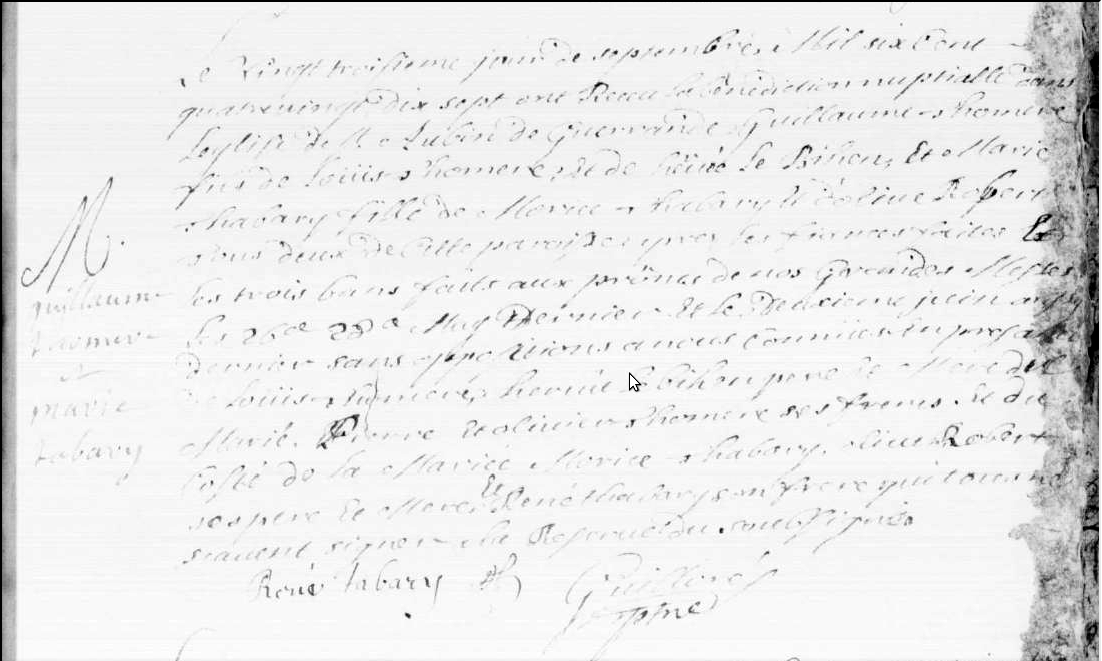 Le Vingt troisieme jour de septembre Mil six Cent
quatrevingt dix sept ont Receu la benediction nuptialle dans
Leglise de St Aubin de Guerrande Guillaume thomere
fils de Loüis thomere, Et de le Bihen, Et Marie
thabary fille de Morice thabary Et doline Robert
tous deux de Cette paroisse apres les fiances faites Et
les trois bans faits aux prônes de nos Grandes Messes
les 26e 28e May Dernier Et le Deuxieme juin aussy
dernier sans oppositions a nous connües En presance
de Loüis thomere, le bihen pere Et Mere du
Marié. Pierre Et olivier thomere ses freres. Et du
Costé de la Mariée Morice thabary, olive Robert
ses pere Et Mere Et René thabary son frere qui tous ne
scavent signer a la Reserve du soubssigné
René tabary
M.
guillaume
taomere
et
marie
tabary